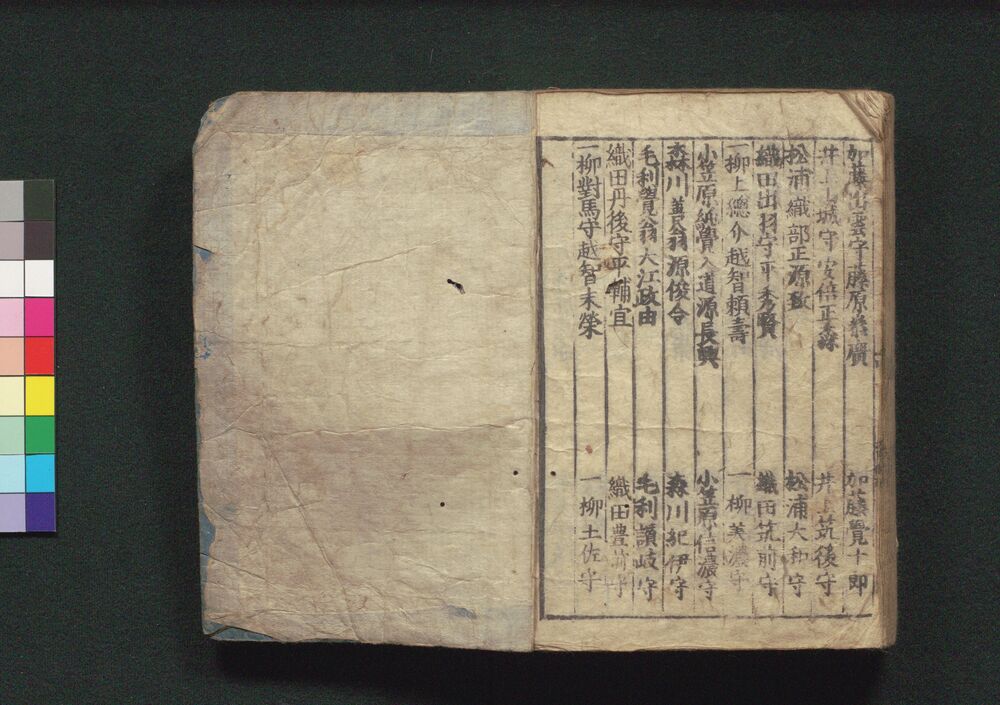 加藤出雲守藤原泰廣 加藤覺十郎
井上山城守安倍正森 井上筑後守
松浦織部正源致 松浦大和守
織田出羽守平秀賢 織田筑前守
一柳上總介越智頼壽 一柳美濃守
小笠原紙齋入道源長興 小笠原信濃守
森川善翁源俊令 森川紀伊守
毛利覽翁大江政由 毛利讃岐守
織田丹後守平輔宜 織田豊前守
一柳對馬守越智末榮 一柳土佐守